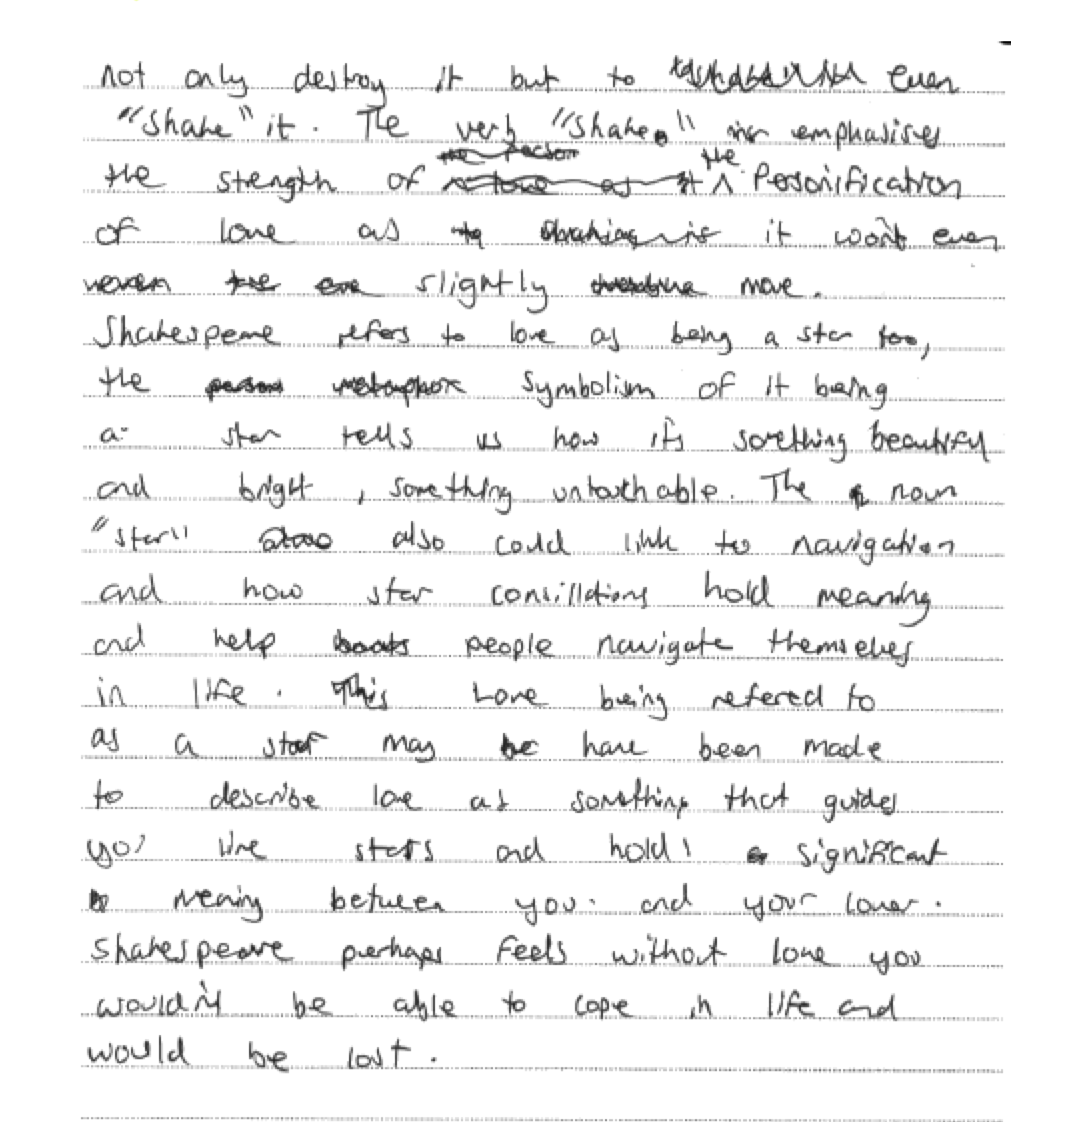 not only destroy it but to even
"Shake" it. The verb "Shake" emphasises
the strength of the Personification
of love as it won't even
slightly move.
Shakespeare refers to love as being a star too,
the symbolism of it being
a star tells us how it's something beautiful
and bright, something untouchable. The noun
"star" also could link to navigation
and how star consillations hold meaning
and help people navigate themselves
in life. Love being refered to
as a star may have been made
to describe love as something that guides
you like stars and holds significant
meaning between you and your lover.
Shakespeare perhaps feels without love you
wouldn't be able to cope in life and
would be lost.